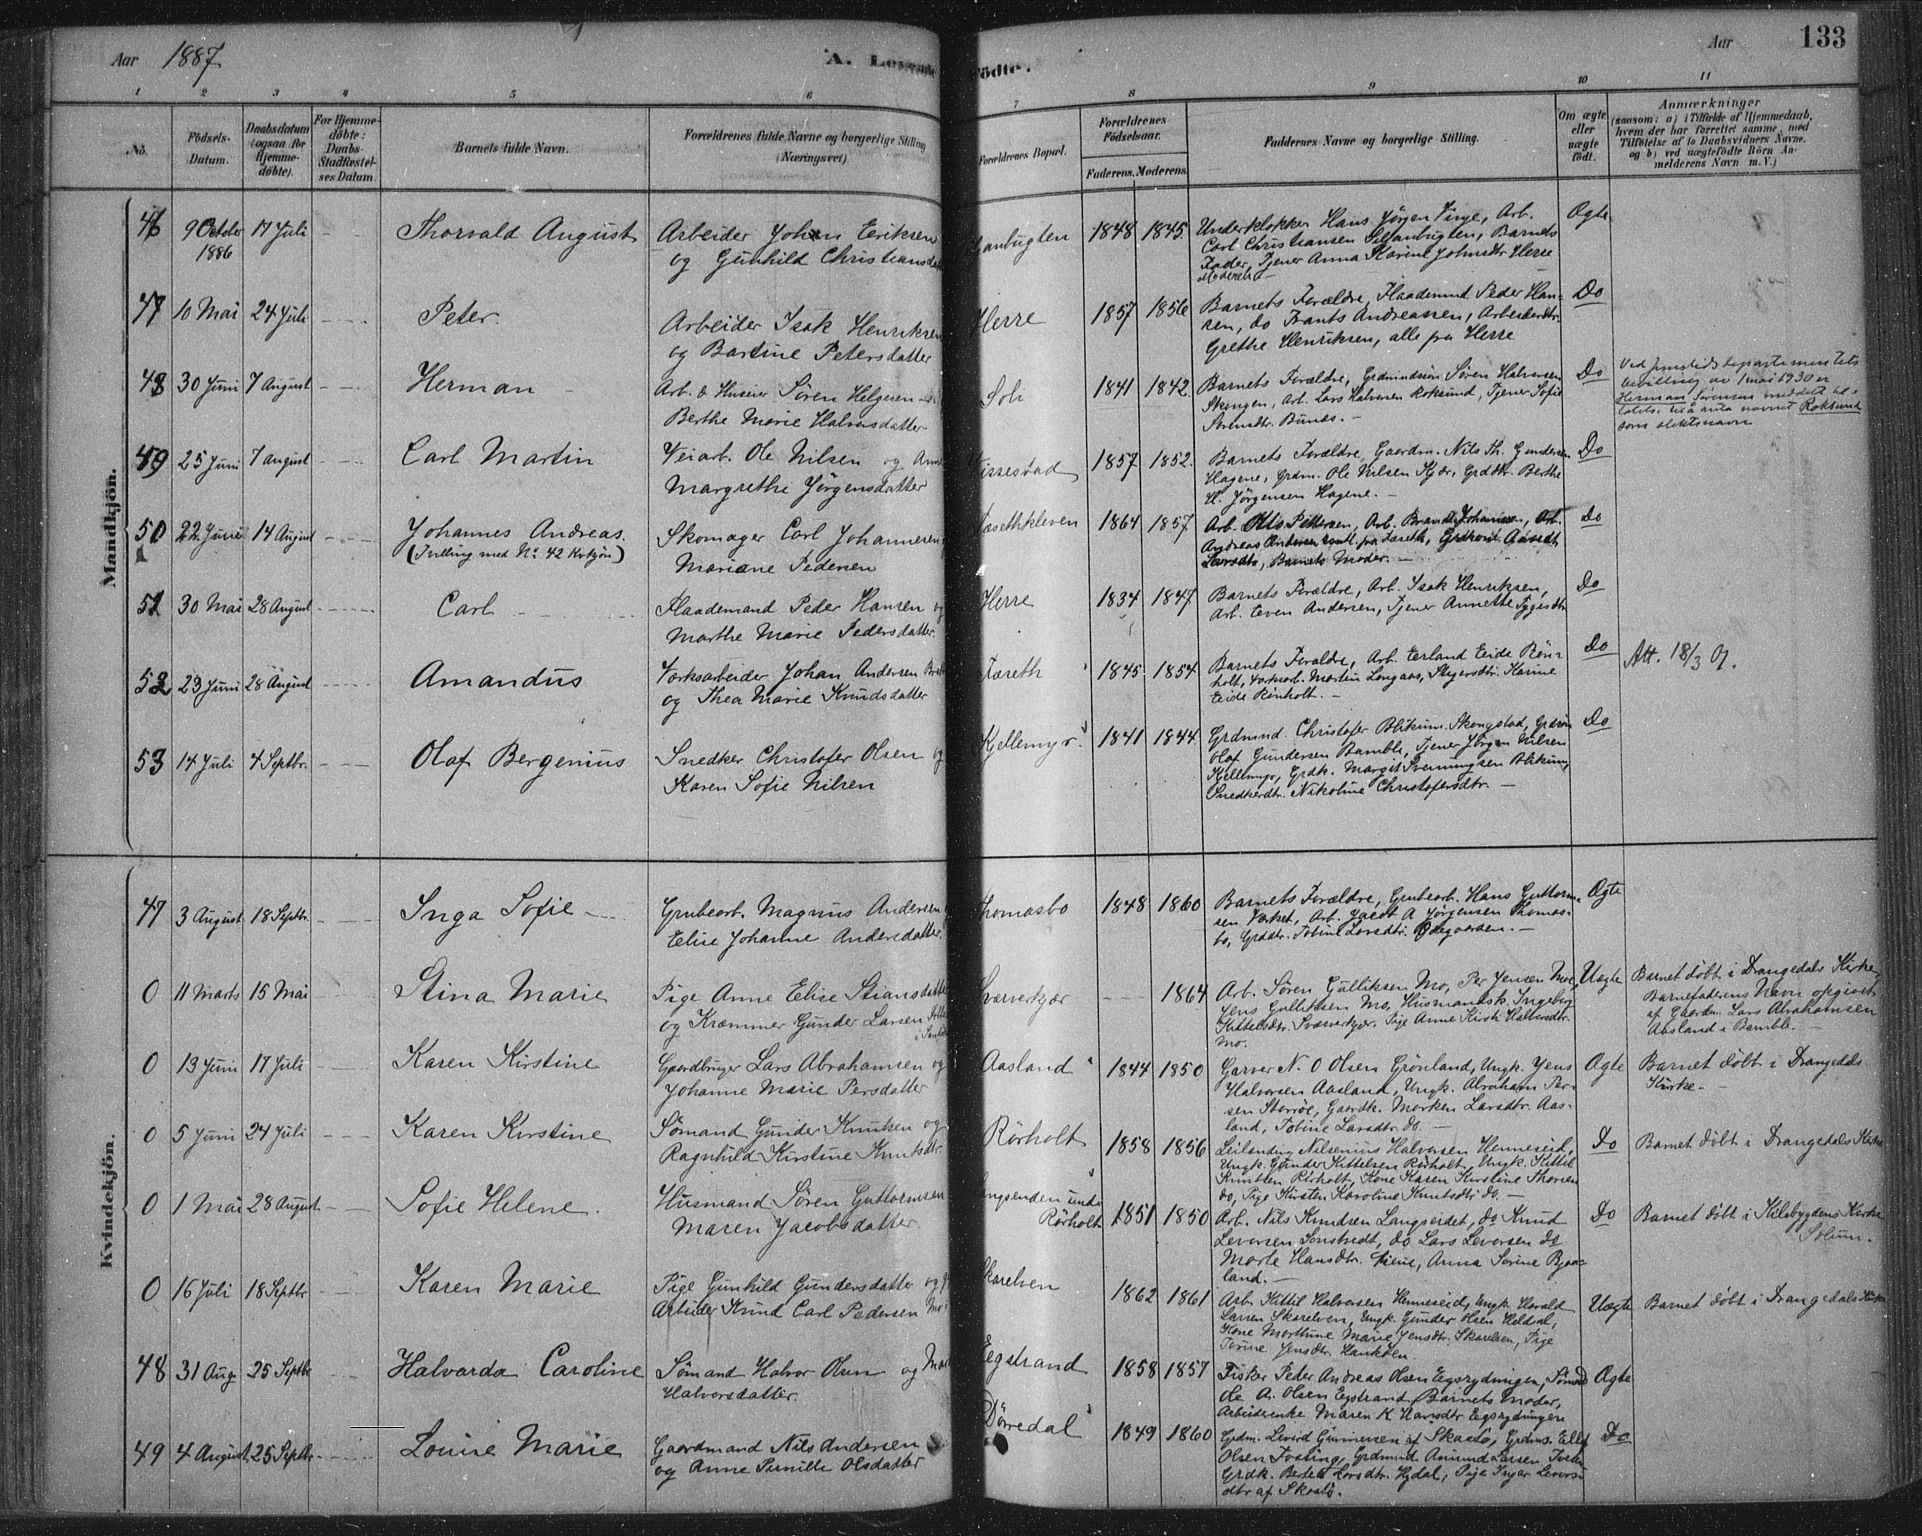 Aar 1887.
A. Levende Födte.
Aar
133
1 2 3 4 5 6 7 8 9 10 11
No.
Födsels-Datum.
Daabsdatum (ogsaa for Hjemme-döbte).
For Hjemme-döbte: Daabs-Stadfæstel-ses Datum.
Barnets fulde Navn.
Forældrenes fulde Navne og borgerlige Stilling (Næringsvei).
Forældrenes Bopæl.
Forældrenes Födselsaar.
Faderens. Moderens.
Faddernes Navne og borgerlige Stilling.
Om ægte eller uægte födt.
Anmærkninger
(saasom: a) i Tilfælde af Hjemmedaab, hvem der har forrettet samme, med Tilföielse af to Daabsvidners Navne. og b) ved uægtefödte Börn An-melderens Navn m. V.)
Mandkjön.
46 9 October 1886 17 Juli Thorvald August
Arbeider Johan Eriksen
og Gunhild Christiansdat
1848 1845.
Underklokker Hans Jörgen Vinje, Arb.
Carl Christiansen, Barnets
Fader, Tjener Anna Karine Johnsdtr Herre
Ægte
47 10 Mai 24 Juli Peter.
Arbeider Isak Henriksen
og Bartine Petersdatter
Herre 1857 1856
Barnets Forældre, Flaademand Peder Han-
sen, do Frants Andreassen, Arbeiderdtr.
Grethe Henriksen, alle fra Herre
Do
48 30 Juni 7 August Herman
Arb. & Huseier Sören Helgesen
Berthe Marie Halvorsdatter
Soli 1841 1842.
Barnets Forældre, Grdmandsön Sören Halvorsen
Skongen, Arb. Lars Halvorsen Roksund, Tjener Sofie
Svendsdtr. Bunes.
Do
Ved justisdepartementets
bevilling av 1 mai 1930 er
Herman Sörensen meddelt til-
latelse til å anta navnet Roksund
som slektsnavn
49 25 Juni 7 august Carl Martin
Veiarb. Ole Nilsen og Anne
Margrethe Jörgensdatter
1857 1852.
Barnets Forældre, Gaardm. Nils Th. Gundersen
Hagene, Grdm. Ole Nilsen Kjær, Grddtr. Berthe
H. Jörgensen Hagene.
Do
50 22 Juni 14 August Johannes Andreas.
(Tvilling med No. 42 Kvkjön)
Skomager Carl Johannesen
Mariane Pedersen
Fæsethkleven 1864 1857
Arb. Otto Pettersen, Arb. Johannesen, Arb.
Andreas Andersen samtl. fra Fæseth,
Larsdtr, Barnets Moder.
Do
51 30 Mai 28 August Carl
Flaademand Peder Hansen og
Marthe Marie Pedersdatter.
Herre 1834 1847
Barnets Forældre, Arb. Isak Henriksen,
Arb. Even Andersen, Tjener Annette
Do
52 23 Juni 28 August Amandus
Værksarbeider Johan Andersen
og Thea Marie Knudsdatter
Fæseth 1845 1854
Barnets Forældre, Arb. Erland Eide Rön-
holt, Værksarb. Martin Langaas, Karine
Eide Rönholt.
Do
Att. 18/3 07.
53 14 Juli 4 Septbr. Olaf Bergenius
Snedker Christofer Olsen og
Karen Sofie Nilsen
Kjellemyr. 1841 1844
Grdmnd. Christofer Blikum Skongstad, Grdsön
Olaf Gundersen Bamble, Tjener Jörgen Nilsen
Kjellemyr, Grdk. Margit Svenningsen Blikum,
Snedkerdtr. Nikoline Christofersdtr.
Do
Kvindekjön.
47 3 August 18 Septbr Inga Sofie
Grubearb. Magnus Andersen
Elise Johanne Andersdatter.
Thomasbo 1848 1860
Barnets Forældre, Grubearb. Hans Guttorm-
sen Værket, Arb. Jacob A Jörgensen Thomas-
bo, Grddtr. Tobine Larsdtr. Ödegaarden.
Ægte
0 11 Marts 15 Mai Stina Marie
Pige Anne Elise Stiansdatter
og Kræmmer Gunder Larsen
Sværverkjær 1864
Arb. Sören Gulliksen Mo, Per Jensen Mo,
Jens Gulliksen Mo, Husmandsk. Ingeborg
Kittelsdtr. Sværverkjær. Pige Anne Kirsti Halvorsdtr.
Mo.
Uægte
Barnet döbt i Drangedals Kirke
Barnefaderens Navn opgivet
af Gaardm. Lars Abrahamsen
Aasland i Bamble.
0 13 Juni 17 Juli Karen Kirstine
Gaardbruger Lars Abrahamsen og
Johanne Marie Persdatter
Aasland 1844 1850
Garver N. O Olsen Grönland, Ungk. Jens
Halvorsen Aasland, Ungk. Abraham Per-
sen Storröe, Gaardk. Marken Larsdtr. Aas-
land, Tobine Larsdtr. do.
Ægte
Barnet döbt i Drangedals
Kirke.
0 5 Juni 24 Juli Karen Kirstine
Sömand Gunder Knutsen og
Ragnhild Kirstine Knutsdtr.
Rörholt 1858 1856
Leilending Nilsenius Halvorsen Henneseid,
Ungk. Gunder Kittelsen Rörholt, Ungk. Kittil
Knutsen Rörholt, Kone Karen Kirstine Thorsen
do, Pige Kirsten Karoline Knutsdtr do.
Do
Barnet döbt i Drangedals Kirke
0 1 Mai 28 August Sofie Helene.
Husmand Sören Guttormsen
Maren Jacobsdatter.
Langsenden under
Rörholt 1851 1850
Arb. Nils Knudsen Langseidet, do Knud
Leversen Sonstvedt, do Lars Leversen do
Marte Hansdtr. Anna Sörine Bjaa-
land.
Do
Barnet döbt i Kilebygdens Kirke
Solum.
0 16 Juli 18 Septbr Karen Marie
Pige Gunhild Gundersdatter og
Arbeider Knud Carl Pedersen
Skarelven 1862 1861
Arb. Kittil Halvorsen Henneseid, Ungk. Harald
Larsen Skarelven, Ungk. Gunder Olsen Heldal,
Kone Marthine Marie Jensdtr. Skarelven, Pige
Torine Jensdtr.
Uægte
Barnet döbt i Drangedals Kirke
48 31 Aug. 25 Septbr Halvarda Caroline
Sömand Halvor Olsen og
Halvorsdatter.
Eegstrand 1858 1857
Fisker Peder Andreas Olsen Eegsrydningen, Sömand
Ole A. Olsen Eegstrand, Barnets Moder,
Arbeiderenke Maren K Hansdtr Eegsrydningen
Ægte
49 4 August 25 Septbr. Louise Marie
Gaardmand Nils Andersen
og Anne Pernille Olsdatter
Dörredal 1849 1860
Grdm. Levord Gunnersen af Skaatö, Grdms. Ellef
Olsen Grdmnd Amund Larsen
Grdk. Berthe Larsdtr. Hydal, Pige Inger Levors-
dtr af Skaatö.
Do